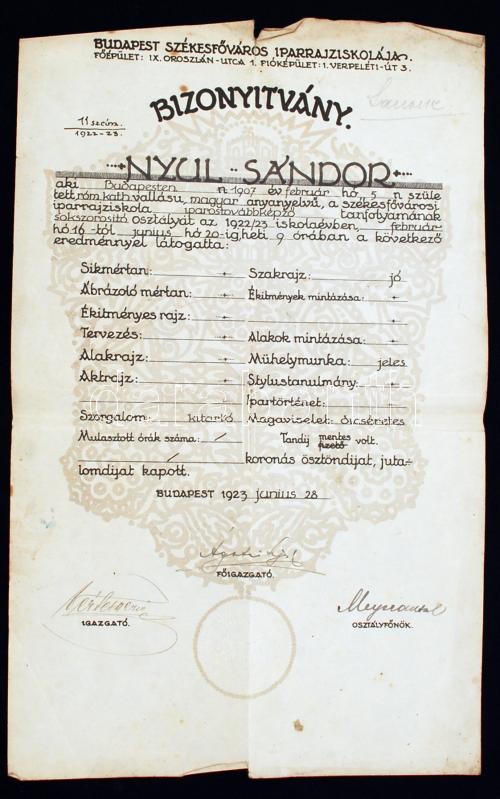 BUDAPEST SZÉKESFŐVÁROS IPARRAJZISKOLÁJA.
FŐÉPÜLET: IX. OROSZLÁN-UTCA 1. FIÓKÉPÜLET: I. VERPELÉTI-ÚT 3.
BIZONYITVÁNY.
11 szám.
1922-23.
NYUL SÁNDOR
aki Budapesten n. 1907 év február hó 5 n szüle
tett, róm. kath. vallásu, magyar anyanyelvű, a székesfővárosi
iparrajziskola iparostovábbképző tanfolyamának
sokszorosító osztályát az 1922/23 iskolaévben, február
hó 16-tól junius hó 20-ig, heti 9 órában a következő
eredménnyel látogatta:
Sikmértan: + Szakrajz: jó
Ábrázoló mértan: + Ékitmények mintázása: +
Ékitményes rajz: + +
Tervezés: + Alakok mintázása: +
Alakrajz: + Műhelymunka: jeles
Aktrajz: + Stylustanulmány: +
+ Ipartörténet: +
Szorgalom: kitartó Magaviselet: dicséretes
Mulasztott órák száma: / Tandij mentes fizető volt.
/ koronás ösztöndijat, juta-
lomdijat kapott.
BUDAPEST 1923 junius 28
FŐIGAZGATÓ.
IGAZGATÓ.
OSZTÁLYFŐNÖK.